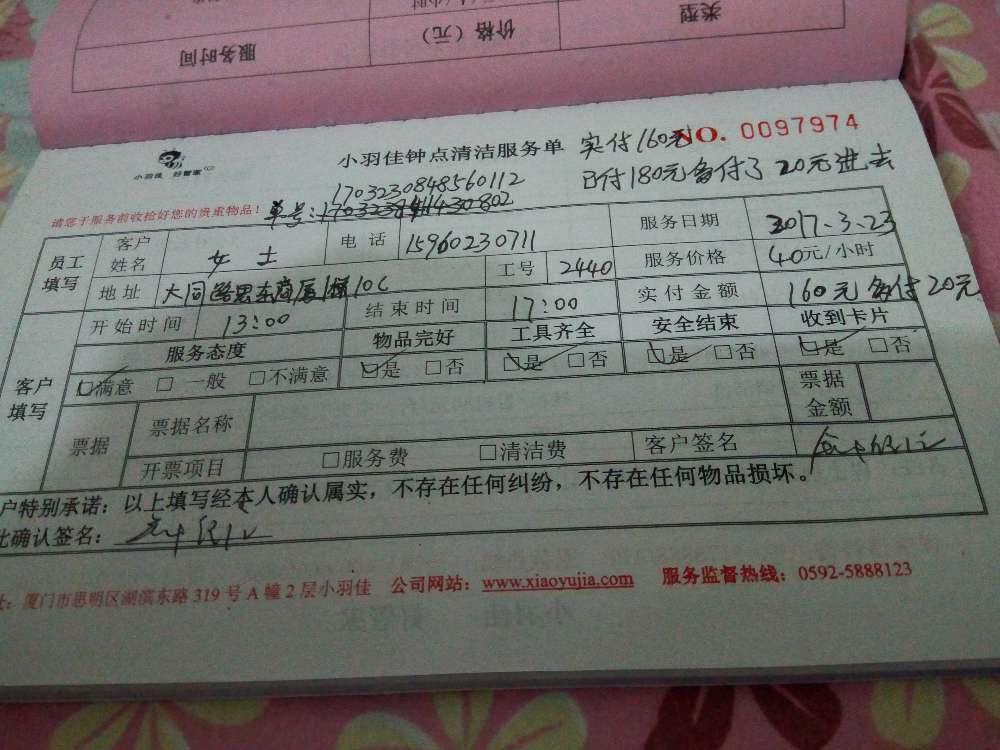 服务时间 价格（元） 类型
小羽佳 好管家
小羽佳钟点清洁服务单 实付160元 NO. 0097974
已付180元多付了20元进去
1703230848560112
请您于服务前收捡好您的贵重物品！ 单号:
员工填写 客户姓名 女士 电话 15960230711 服务日期 2017.3.23
地址 大同路思东商厦1梯10C 工号 2440 服务价格 40元/小时
客户填写 开始时间 13:00 结束时间 17:00 实付金额 160元 多付20元
服务态度 物品完好 工具齐全 安全结束 收到卡片
☑满意 □一般 □不满意 ☑是 □否 ☑是 □否 ☑是 □否 ☑是 □否
票据 票据名称 票据金额
开票项目 □服务费 □清洁费 客户签名
户特别承诺：以上填写经本人确认属实，不存在任何纠纷，不存在任何物品损坏。
此确认签名：
址：厦门市思明区湖滨东路319号A幢2层小羽佳 公司网站：www.xiaoyujia.com 服务监督热线：0592-5888123